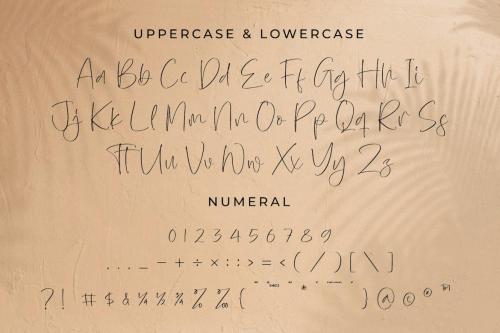 UPPERCASE & LOWERCASE
Aa Bb Cc Dd Ee Ff Gg Hh Ii
Jj Kk Ll Mm Nn Oo Pp Qq Rr Ss
Tt Uu Vv Ww Xx Yy Zz
NUMERAL
0 1 2 3 4 5 6 7 8 9
. . . _ − + ÷ × : : > = < ( / ) [ \ ]
? ! # $ & ¼ ½ ¾ % ‰ { } @ © ® ™